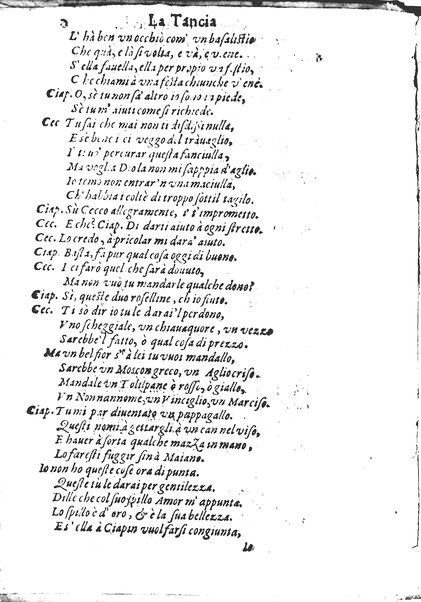 La Tancia
L'hà ben vn occhiò com' vn basalistio
Che quà, e là si volta, e và, e vene.
S'ella fauella, ella per proprio vn fistio,
Che chiami à vna festa chiunche v'enè.
Ciap. O, se tu non sa' altro io so io in piede,
Se tu m'aiuti come si richede.
Cec. Tu sai che mai non ti disdissi nulla,
E se bene i ci veggo del trauaglio,
I' tuo' percurar questa fanciulla,
Ma vogl'a Dio la non mi sappia d'aglio.
Io temo non entrar'n vna maciulla,
Ch'habbia i coltè di troppo sottil taglio.
Ciap. Sù Cecco allegramente, i' t'imprometto.
Cec. E che? Ciap. Di darti aiuto à ogni stretto.
Cec. Lo credo, à pricolar mi dara' aiuto.
Ciap. Basta, fà pur qual cosa oggi di buono.
Cec. I ci farò quel che sarà douuto,
Ma non vuo tu mandarle qualche dono?
Ciap. Sì, queste duo roselline, ch'io fiuto.
Cec. Ti sò dir io tu le darai'l perdono,
Vno scheggiale, vn chiauaquore, vn vezzo
Sarebbe'l fatto, ò qual cosa di prezzo.
Ma vn bel fior s'à lei tu vuoi mandallo,
Sarebbe vn Moscongreco, vn Agliocriso.
Mandale vn Tolispane ò rosso, ò giallo,
Vn Nonnannome, vn Vinciglio, vn Marciso.
Ciap. Tu mi par diuentato vn pappagallo.
Questi nomi à gettargli à vn can nel viso,
E hauer à sorta qualche mazza in mano,
Lo faresti fuggir sin à Maiano.
Io non ho queste cose ora di punta.
Queste tù le darai per gentilezza.
Dille che col suo spillo Amor m'appunta.
Lo spillo è d'oro, & è la sua bellezza.
E s'ella à Ciapin vuol farsi congiunta,
Io